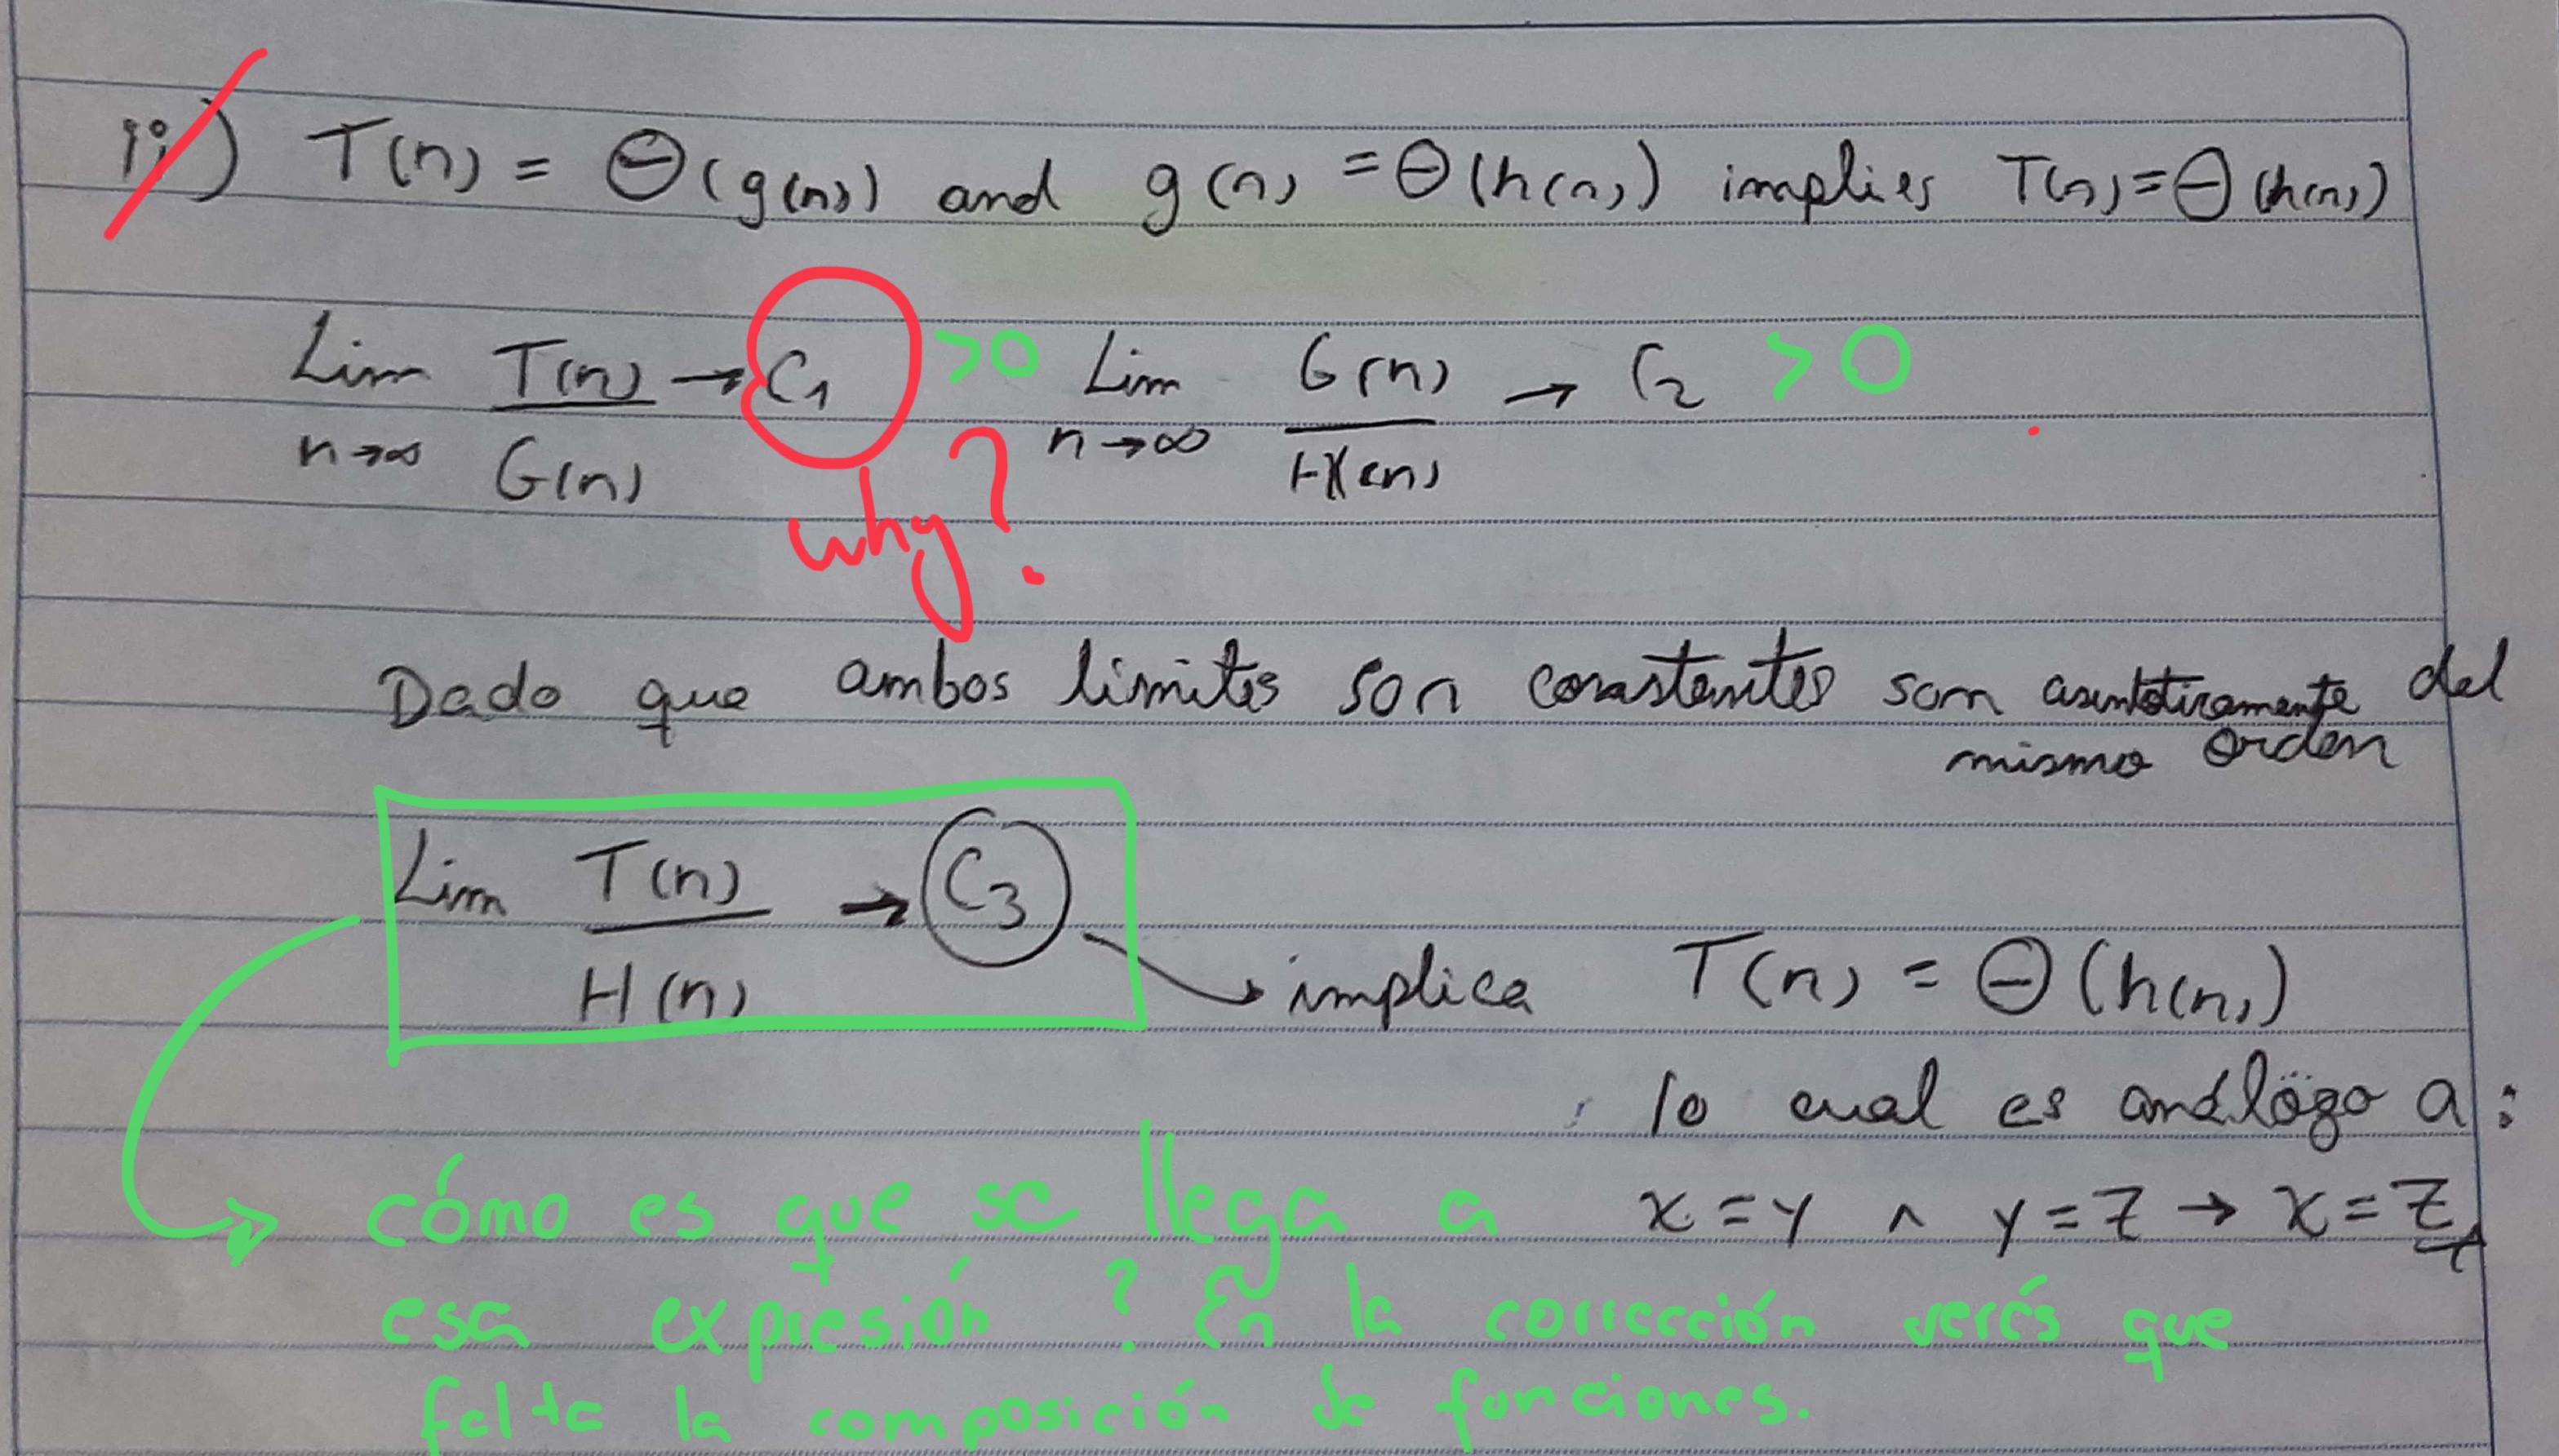 ii) T(n) = Θ(g(n)) and g(n) = Θ(h(n)) implies T(n) = Θ(h(n))
Lim T(n) → C₁ >0 Lim G(n) → C₂ >0
n→∞ G(n) n→∞ H(n)
why?
Dado que ambos limites son constantes son asintoticamente del
mismo orden
Lim T(n) → C₃
H(n)
implica T(n) = Θ(h(n))
lo cual es análogo a:
x = y ∧ y = z → x = z
cómo es que se llega a
esa expresión? En la corrección verás que
falta la composición de funciones.